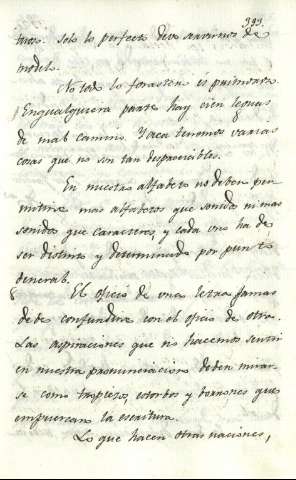 393.
tros. Solo lo perfecto deve servirnos de
model.
No todo lo forastero es primoroso.
En qualquiera parte hay cien leguas
de mal camino. Y aca tenemos varias
cosas que no son tan despreciables.
En nuestro alfabeto no deben per
mitirse mas alfabetos que sonidos ni mas
sonidos que caracteres, y cada uno ha de
ser distinto y determinado por punto
general.
El oficio de una letra jamas
debe confundirse con el oficio de otra.
Las aspiraciones que no hacemos sentir
en nuestra pronunciacion deben mirar
se como tropiezos, estorbos y borrones que
empuercan la escritura.
Lo que hacen otras naciones,